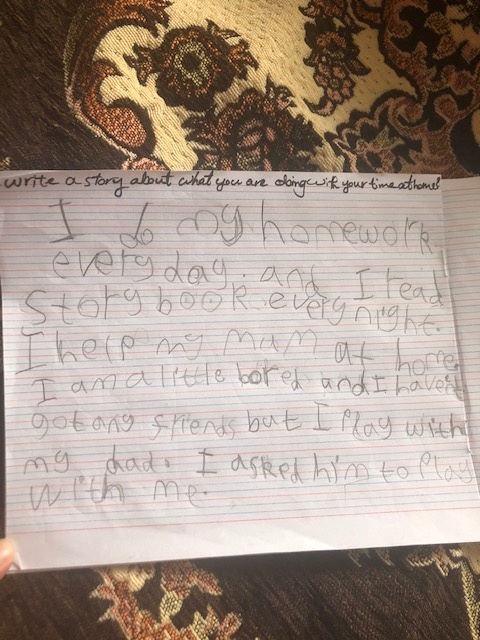 write a story about what you are doing with your time at home?
I do my homework
every day. and I read
Story book every night.
I help my mum at home
I am a little bored and I havent
got any friends but I Play with
my dad. I asked him to Play
with me.